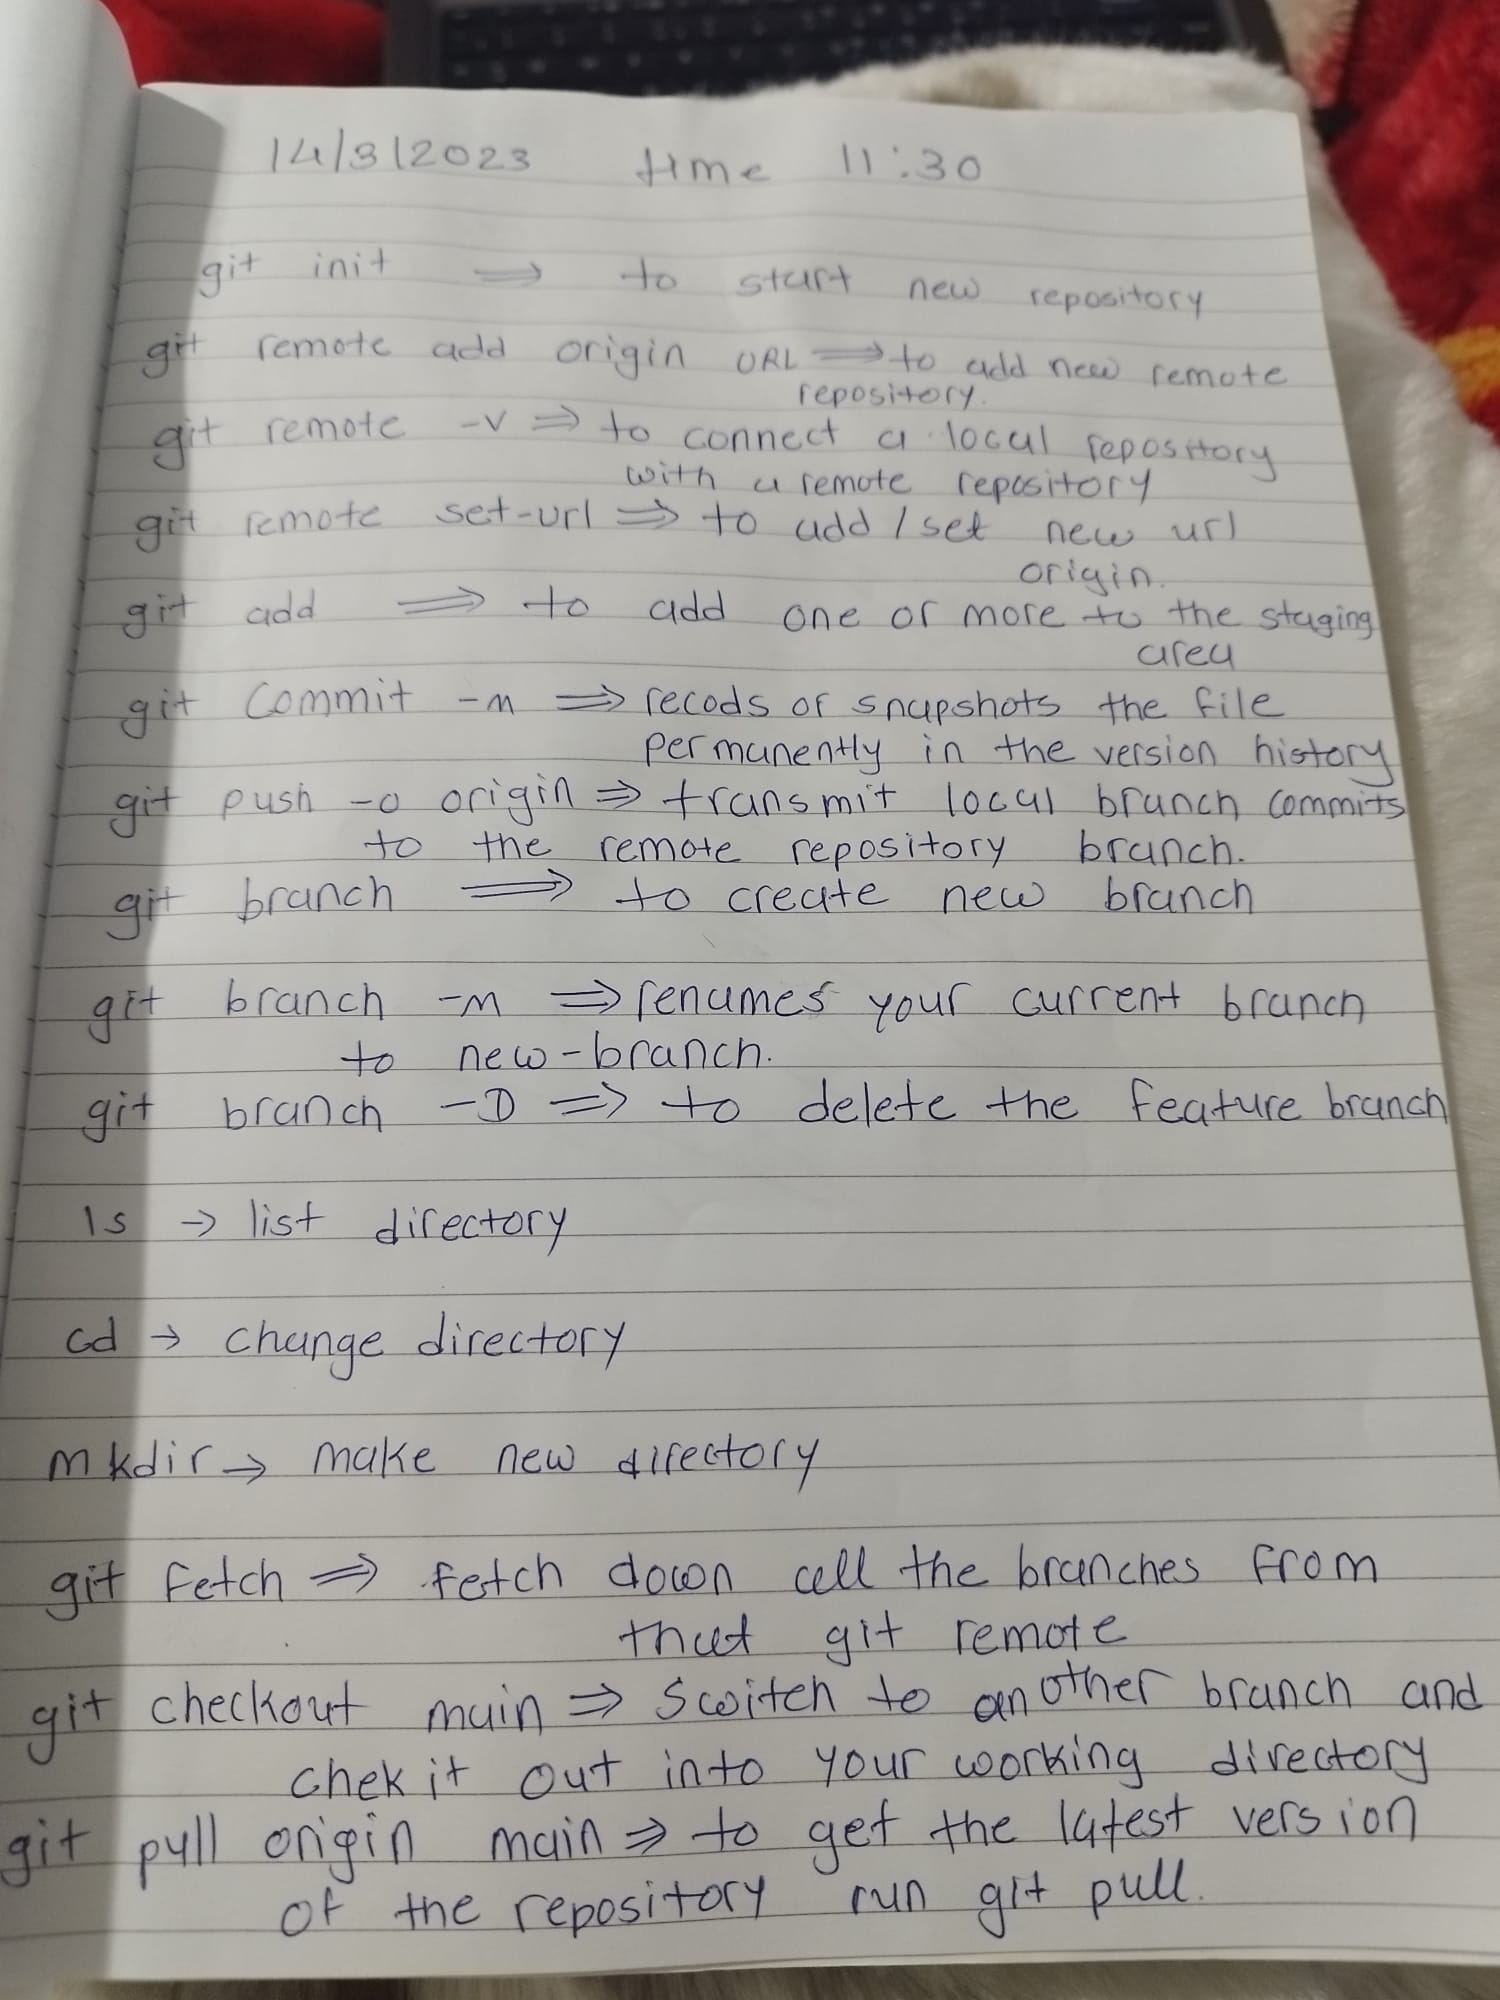 14/3/2023 time 11:30
git init ⇒ to start new repository
git remote add origin URL ⇒ to add new remote
repository.
git remote -v ⇒ to connect a local repository
with a remote repository
git remote set-url ⇒ to add / set new url
origin.
git add ⇒ to add one or more to the staging
area
git commit -m ⇒ recods or snapshots the file
permanently in the version history
git push -o origin ⇒ transmit local branch commits
to the remote repository branch.
git branch ⇒ to create new branch
git branch -m ⇒ renames your current branch
to new-branch.
git branch -D ⇒ to delete the feature branch
ls → list directory
cd → change directory
mkdir → make new directory
git fetch ⇒ fetch down all the branches from
that git remote
git checkout main ⇒ switch to another branch and
chek it out into your working directory
git pull origin main ⇒ to get the latest version
of the repository run git pull.